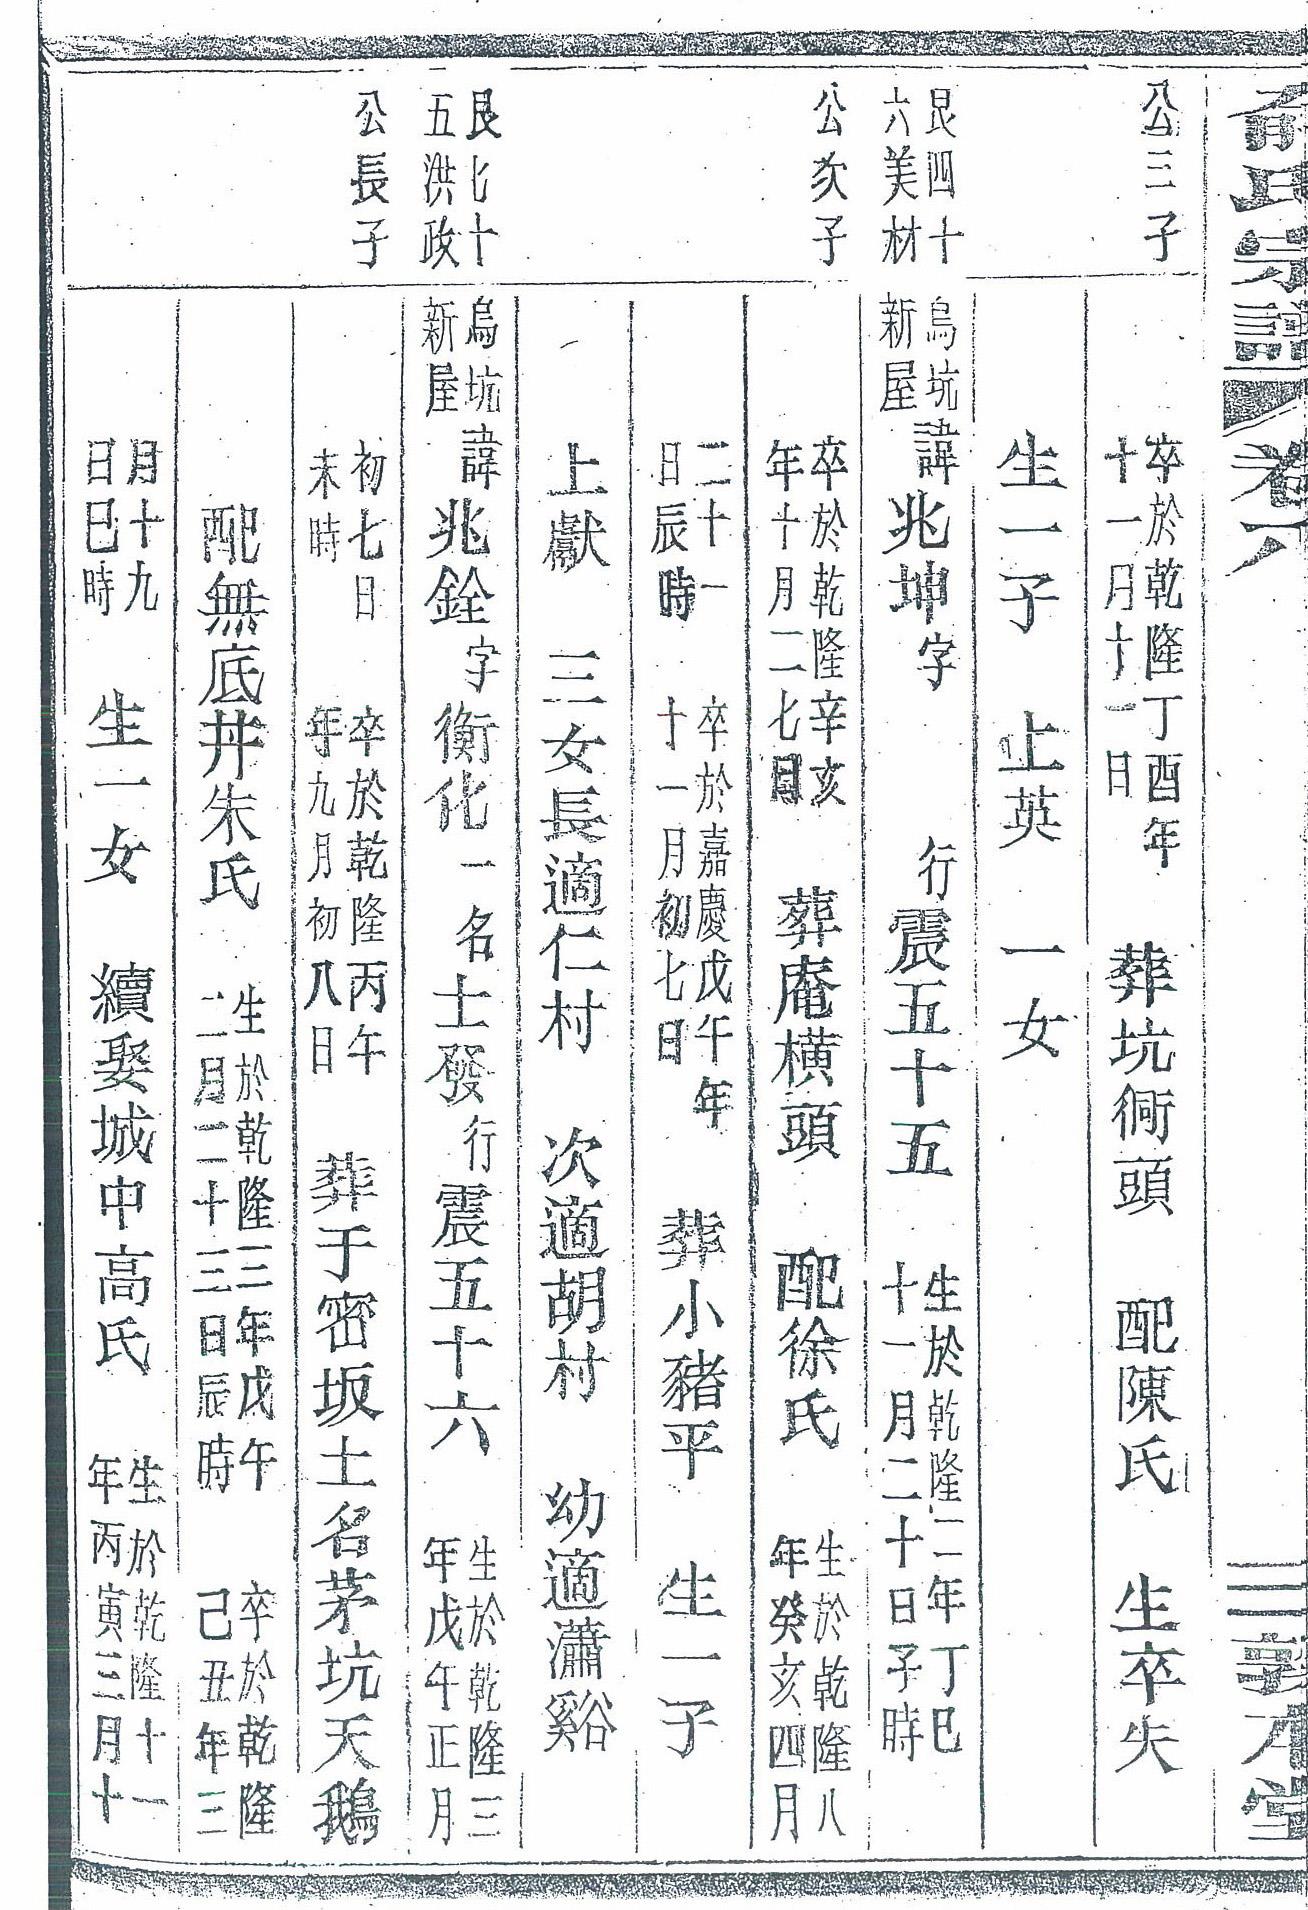 俞氏宗譜 卷六 敦本堂
公三子
卒於乾隆丁酉年
十一月十一日
葬坑衕頭 配陳氏 生卒失
生一子 上英 一女
艮四十
六美材
烏坑
新屋
諱兆坤字 行震五十五
生於乾隆二年丁巳
十一月二十日子時
公次子
卒於乾隆辛亥
年十月二七日
葬庵橫頭 配徐氏
生於乾隆八
年癸亥四月
二十一
日辰時
卒於嘉慶戊午年
十一月初七日
葬小豬平 生一子
上獻 三女長適仁村 次適胡村 幼適瀟谿
艮七十
五洪政
烏坑
新屋
諱兆銓字衡化一名士發行震五十六
生於乾隆三
年戊午正月
公長子
初七日
未時
卒於乾隆丙午
年九月初八日
葬于密坂土名茅坑天鵝
配無底井朱氏
生於乾隆三年戊午
二月二十三日辰時
卒於乾隆
己丑年三
月十九
日巳時
生一女 續娶城中高氏
生於乾隆十一
年丙寅三月十